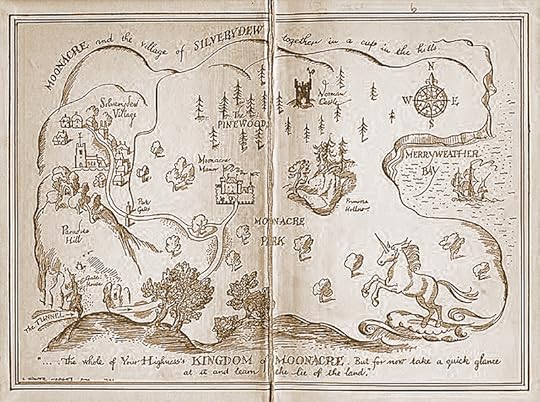 6
MOONACRE and the village of SILVERYDEW together in a cup in the hills.
N
W E
S
Silverydew
Village
The
PINEWOOD
Norman
Castle
MERRYWEATHER
BAY
Moonacre
Manor
Park
Gates
Primrose
Hollow
MOONACRE
PARK
Paradise
Hill
Gate
House
The TUNNEL
"... The whole of Your Highness's KINGDOM of MOONACRE. But for now take a quick glance
at it and learn the lie of the land."